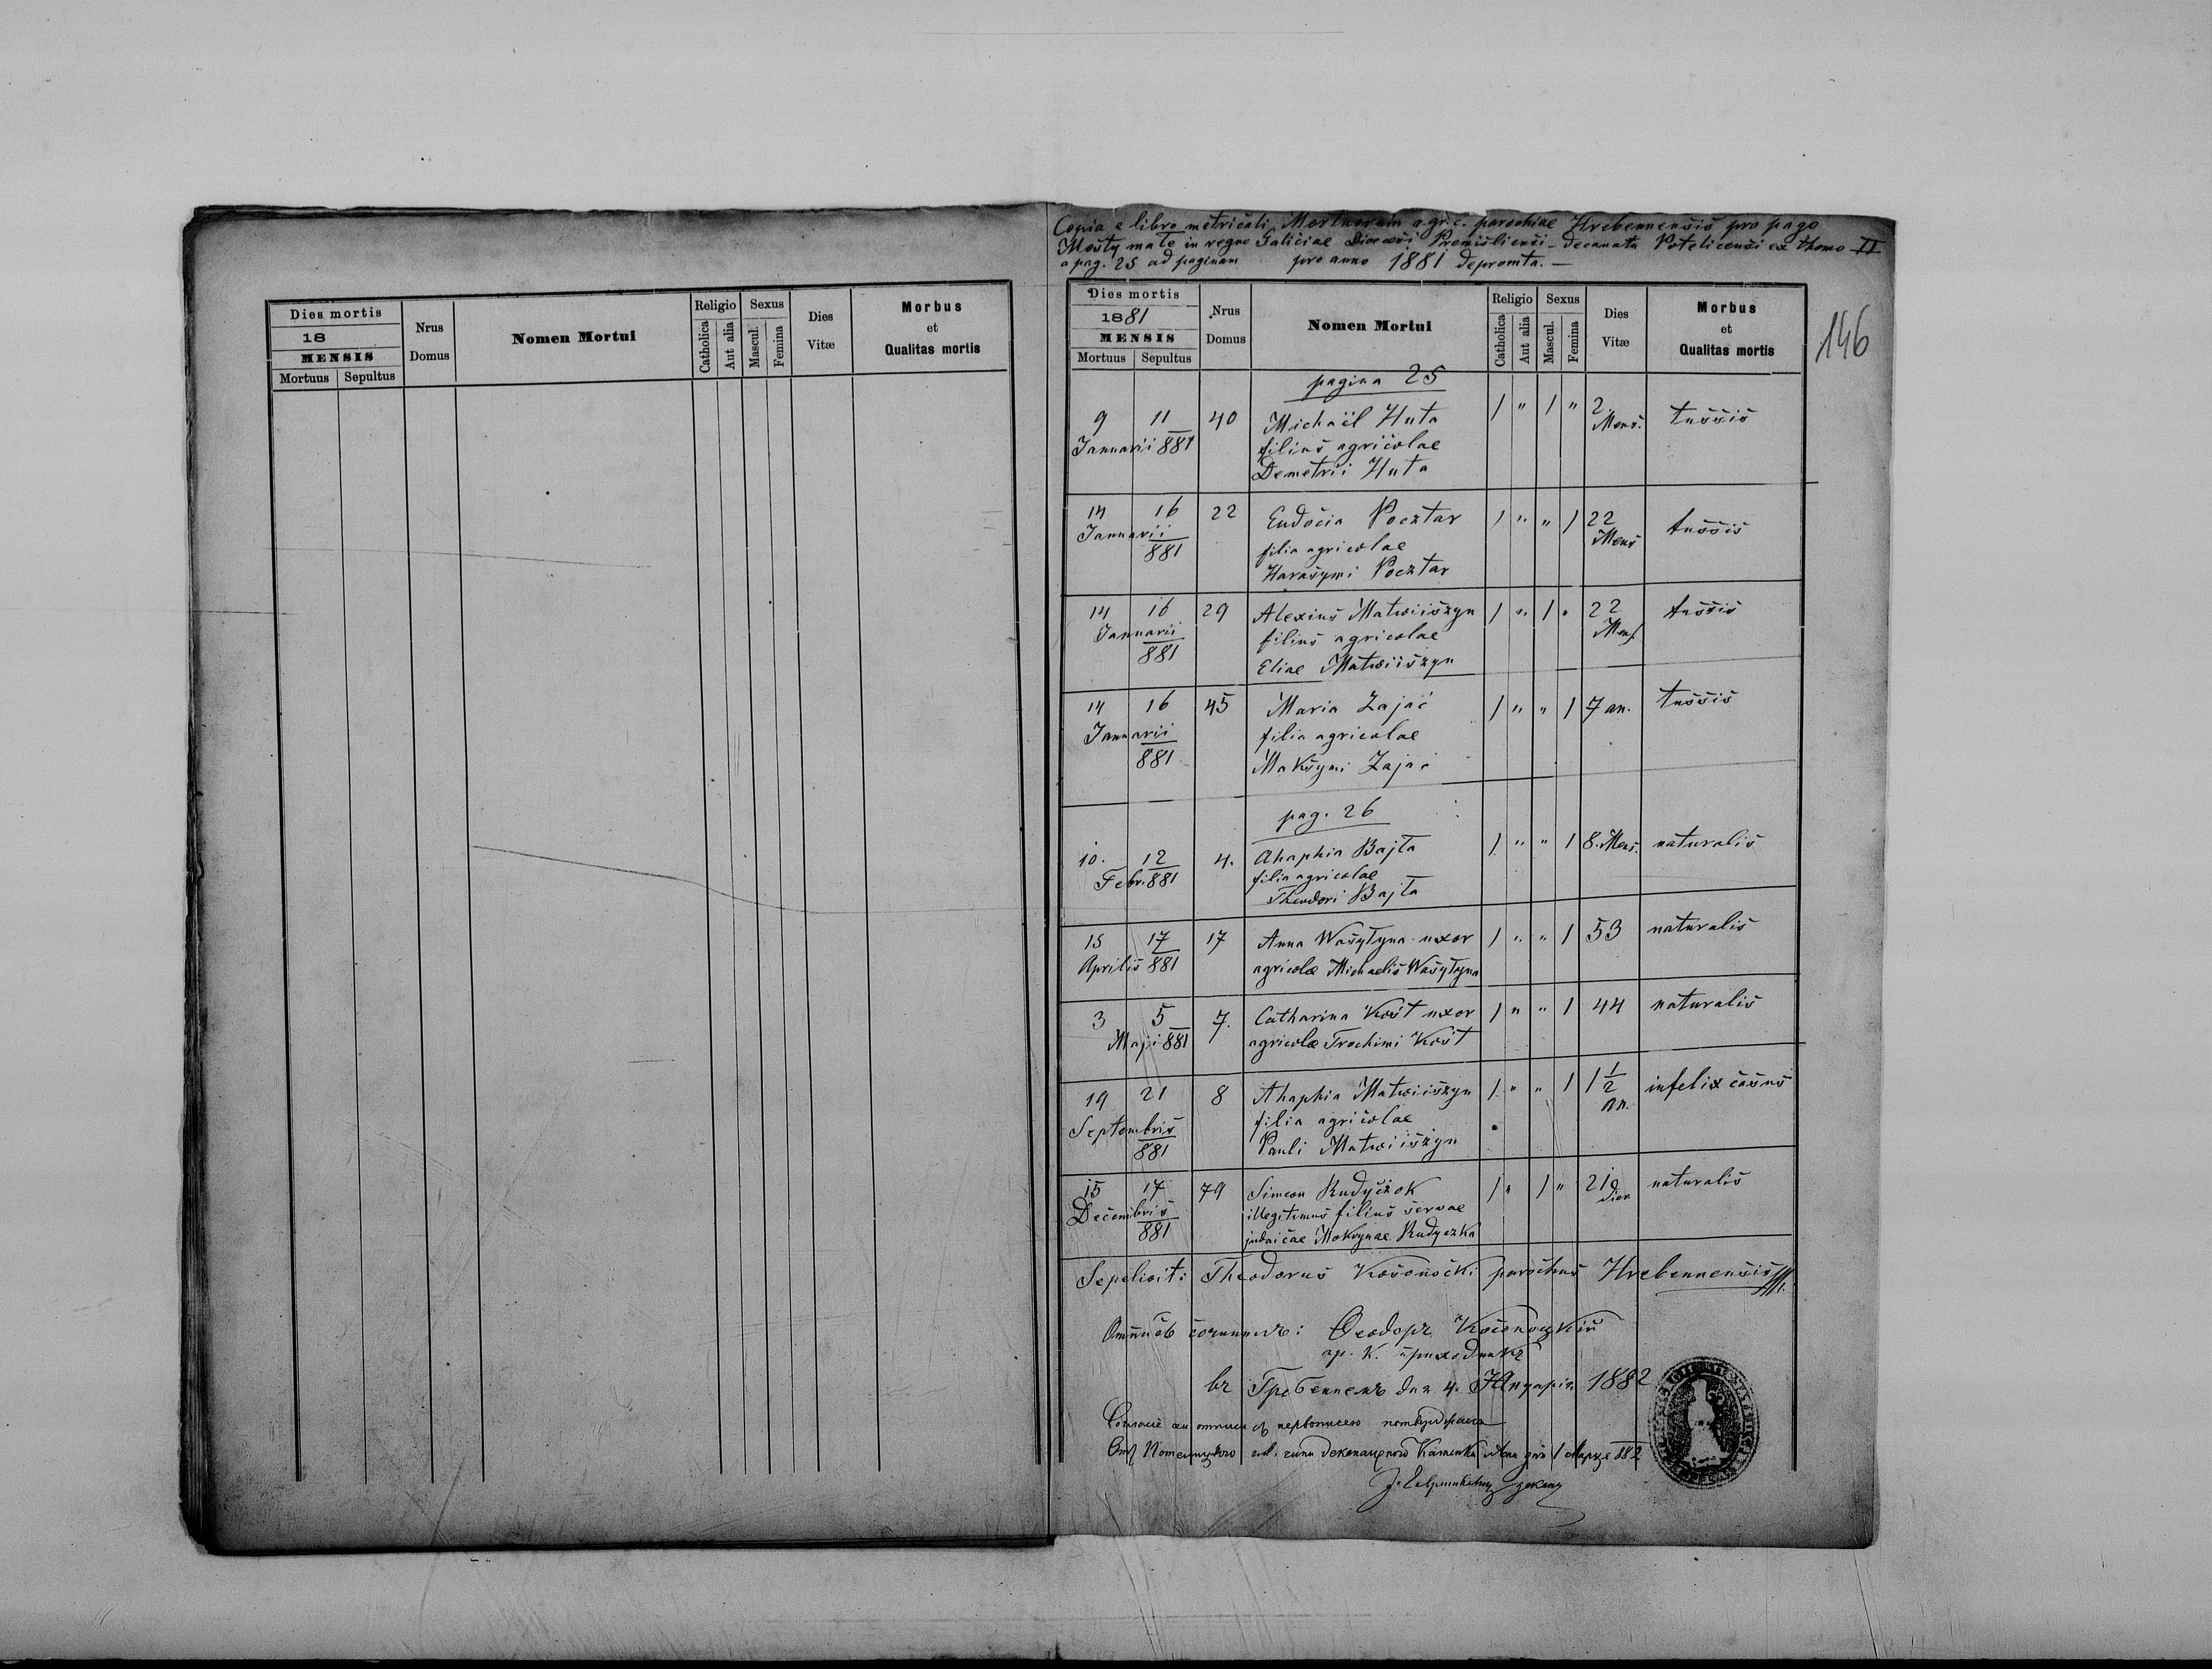 Dies mortis
18
MENSIS
Mortuus Sepultus
Nrus
Domus
Nomen Mortui
Religio
Catholica
Aut alia
Sexus
Mascul.
Femina
Dies
Vitæ
Morbus
et
Qualitas mortis
Copia e libro metricali Mortuorum r. gr. c. parochiae Hrebennensis pro pago
Mosty małe in regno Galiciae Dioecesi Premisliensi - Decanatu Potelicensi ex thomo II
a pag. 25 ad paginam pro anno 1881 depromta. —
146
Dies mortis
1881
MENSIS
Mortuus Sepultus
Nrus
Domus
Nomen Mortui
Religio
Catholica
Aut alia
Sexus
Mascul.
Femina
Dies
Vitæ
Morbus
et
Qualitas mortis
pagina 25
9 11 40 Michaël Huta 1 " 1 " 2 tussis
Januarii 881 filius agricolae Mens.
Demetrii Huta
14 16 22 Eudocia Pocztar 1 " " 1 22 tussis
Januarii filia agricolae Mens
881 Harasymi Pocztar
14 16 29 Alexius Matwiiszyn 1 " 1 " 22 tussis
Januarii filius agricolae Mens
881 Eliae Matwiiszyn
14 16 45 Maria Zając 1 " " 1 7 an. tussis
Januarii filia agricolae
881 Maksymi Zając
pag. 26
10. 12 4. Ahaphia Bajta 1 " " 1 8. Mens. naturalis
Febr. 881 filia agricolae
Theodori Bajta
15 17 17 Anna Wasyłyna uxor 1 " " 1 53 naturalis
Aprilis 881 agricolæ Michaelis Wasyłyna
3 5 7. Catharina Kost uxor 1 " " 1 44 naturalis
Maji 881 agricolæ Trochimi Kost
19 21 8 Ahaphia Matwiiszyn 1 " " 1 1 1/2 infelix casus
Septembris filia agricolae an.
881 Pauli Matwiiszyn
15 17 79 Simeon Rudyczok 1 " 1 " 21 naturalis
Decembris illegitimus filius servae dier
881 judaicae Mokrynae Rudyczka
Sepelivit: Theodorus Kosonocki parochus Hrebennensis
Отписъ сочинилъ: Ѳеодоръ Косоноцкій
гр. к. приходникъ
въ Гребенномъ дня 4. Януарія 1882